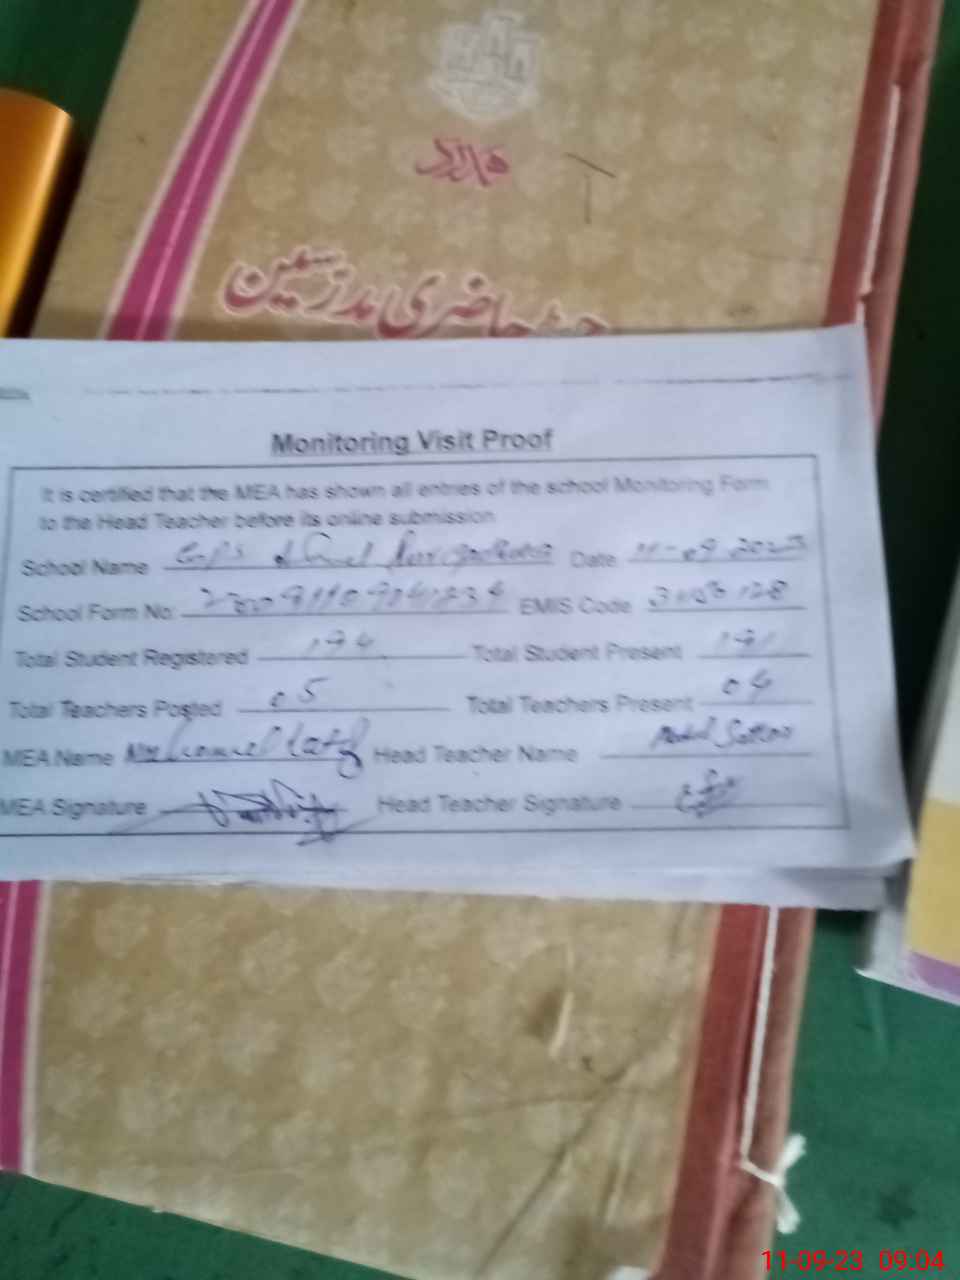 حاضری مدرسین
Monitoring Visit Proof
It is certified that the MEA has shown all entries of the school Monitoring Form
to the Head Teacher before its online submission
School Name Date 11-09-2023
School Form No. EMIS Code
Total Student Registered Total Student Present 191
Total Teachers Posted 05 Total Teachers Present 04
MEA Name Muhammad Head Teacher Name Abdul Sattar
MEA Signature Head Teacher Signature
11-09-23 09:04